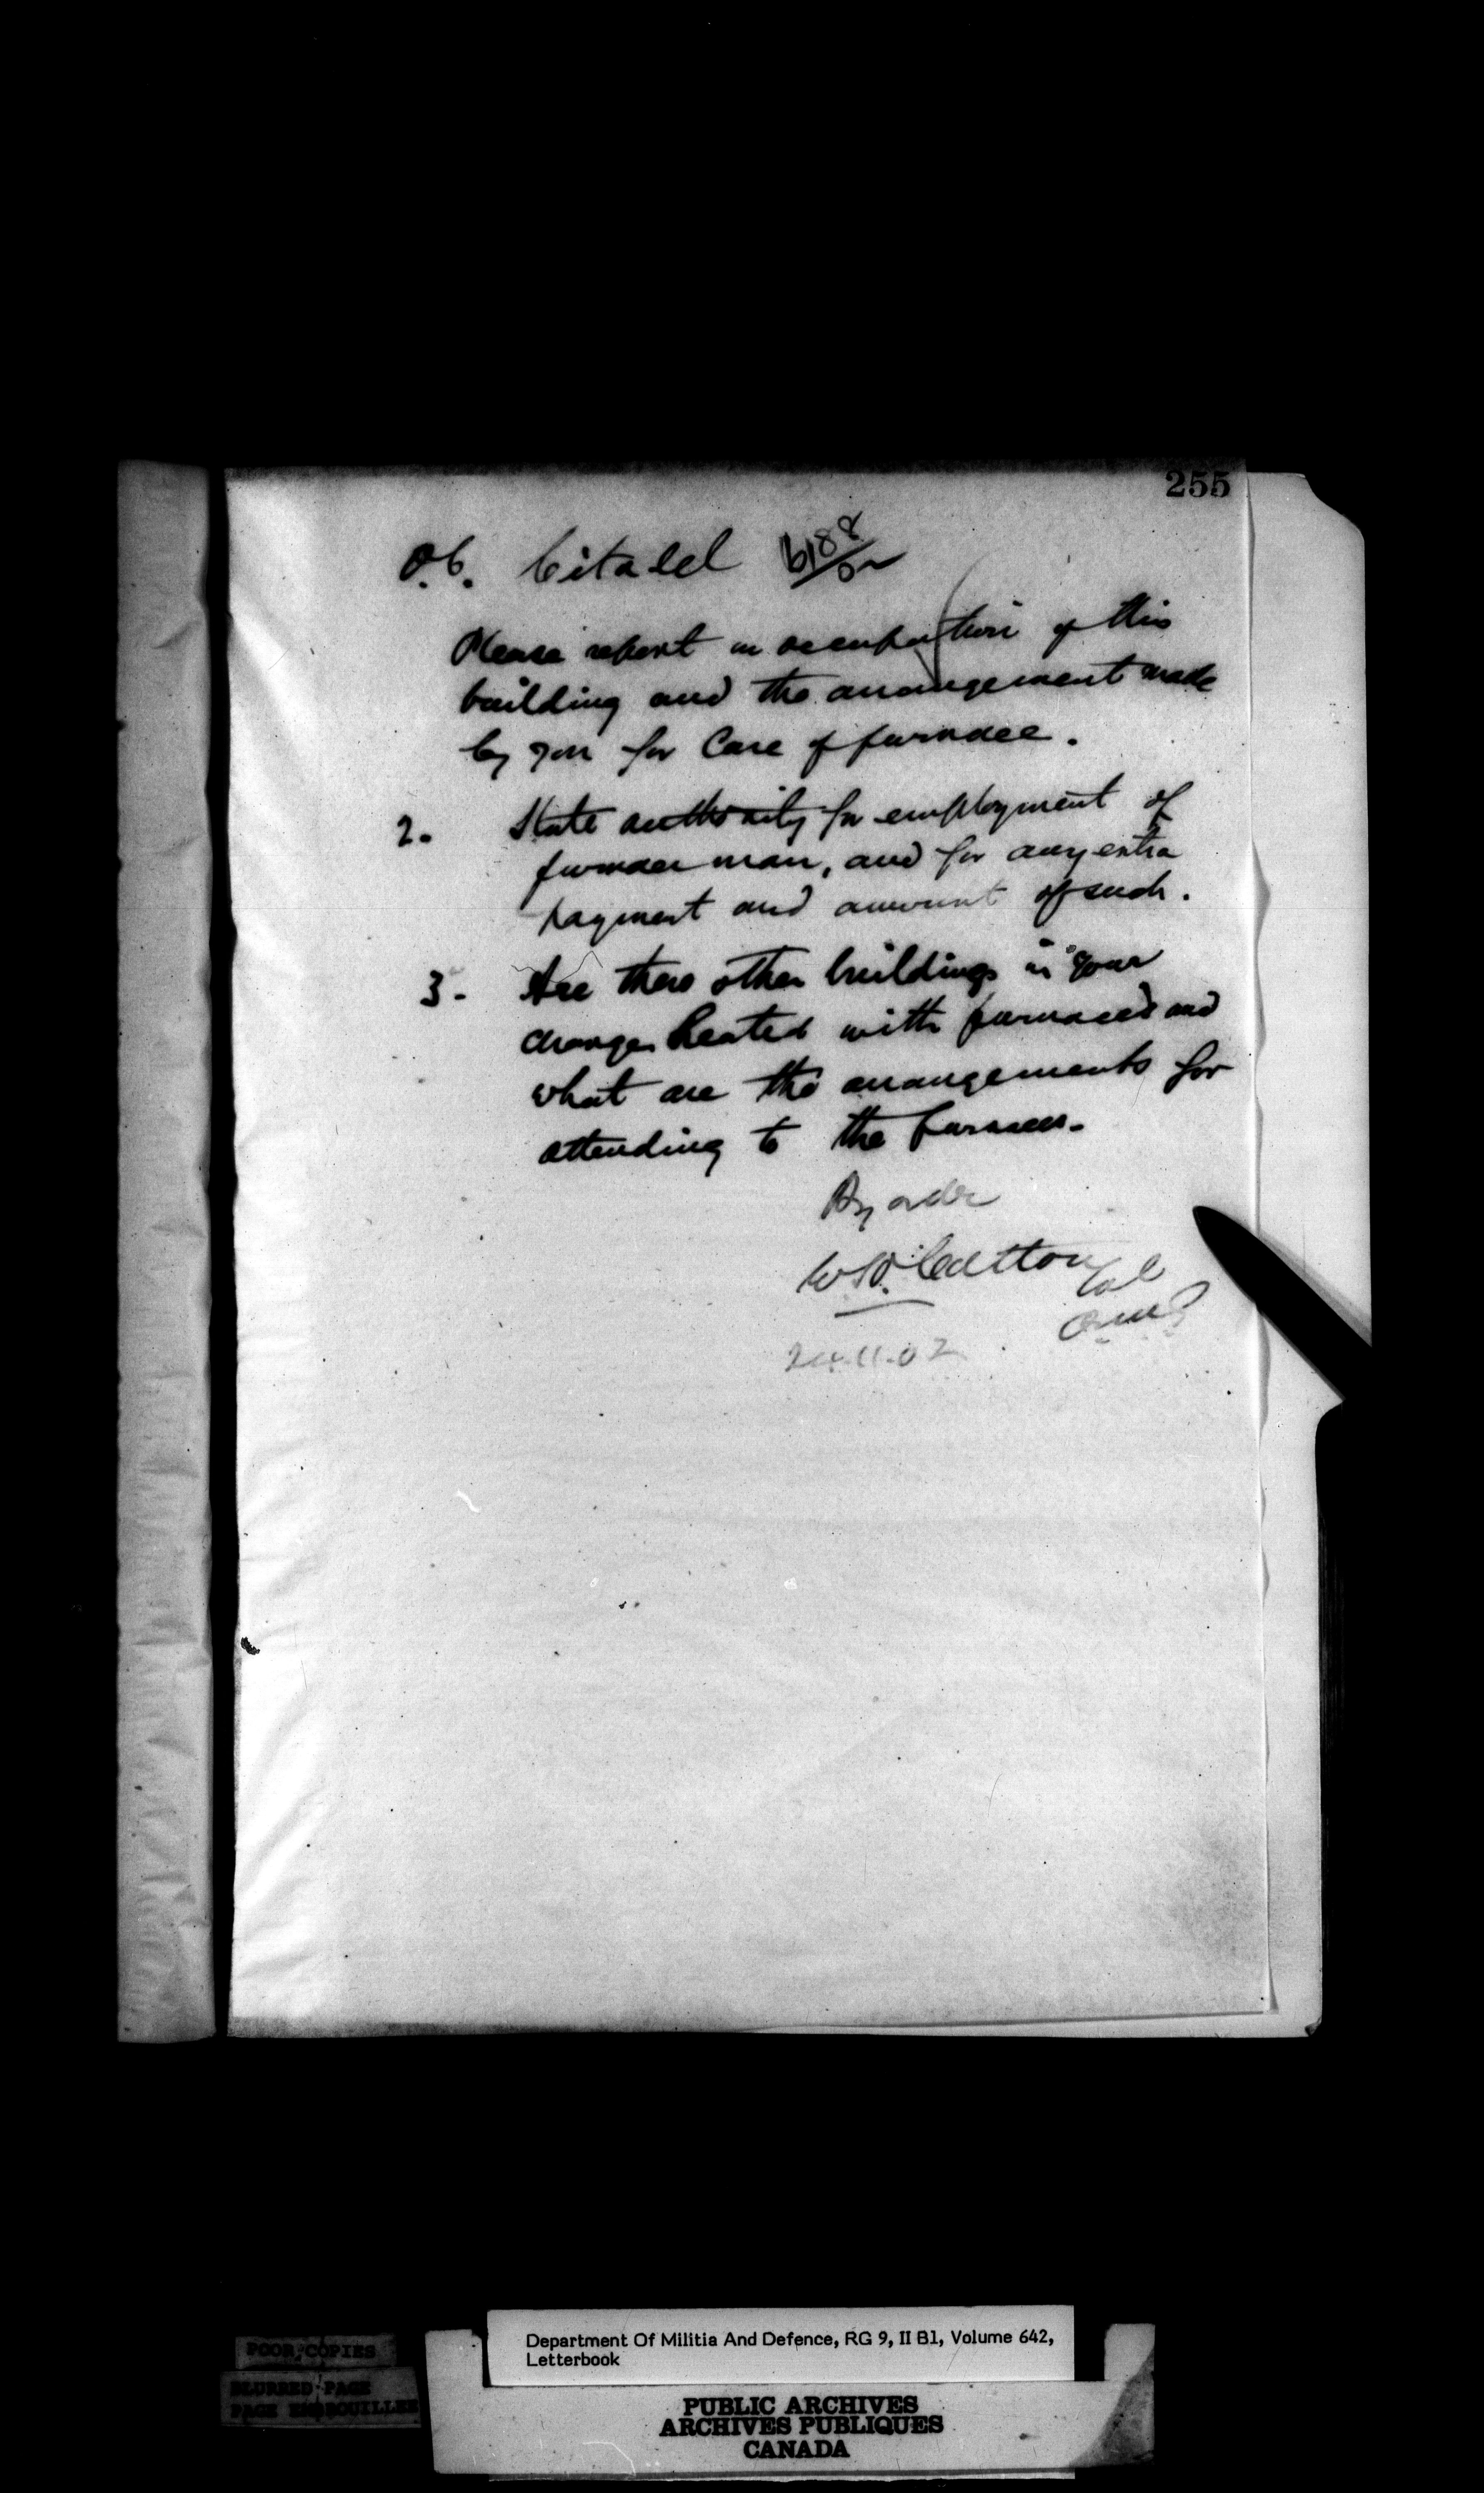 255
O.C. Citadel 6188/02
Please report on occupation of this
building and the arrangement made
by you for Care of furnace.
2. State authority for employment of
furnace man, and for any extra
payment and amount of such.
3- Are there other buildings in your
charge heated with furnaces and
what are the arrangements for
attending to the furnaces.
By order
Cotton Col
24.11.02
POOR COPIES
BLURRED PAGE
PAGE EMBROUILLEE
Department Of Militia And Defence, RG 9, II B1, Volume 642,
Letterbook
PUBLIC ARCHIVES
ARCHIVES PUBLIQUES
CANADA